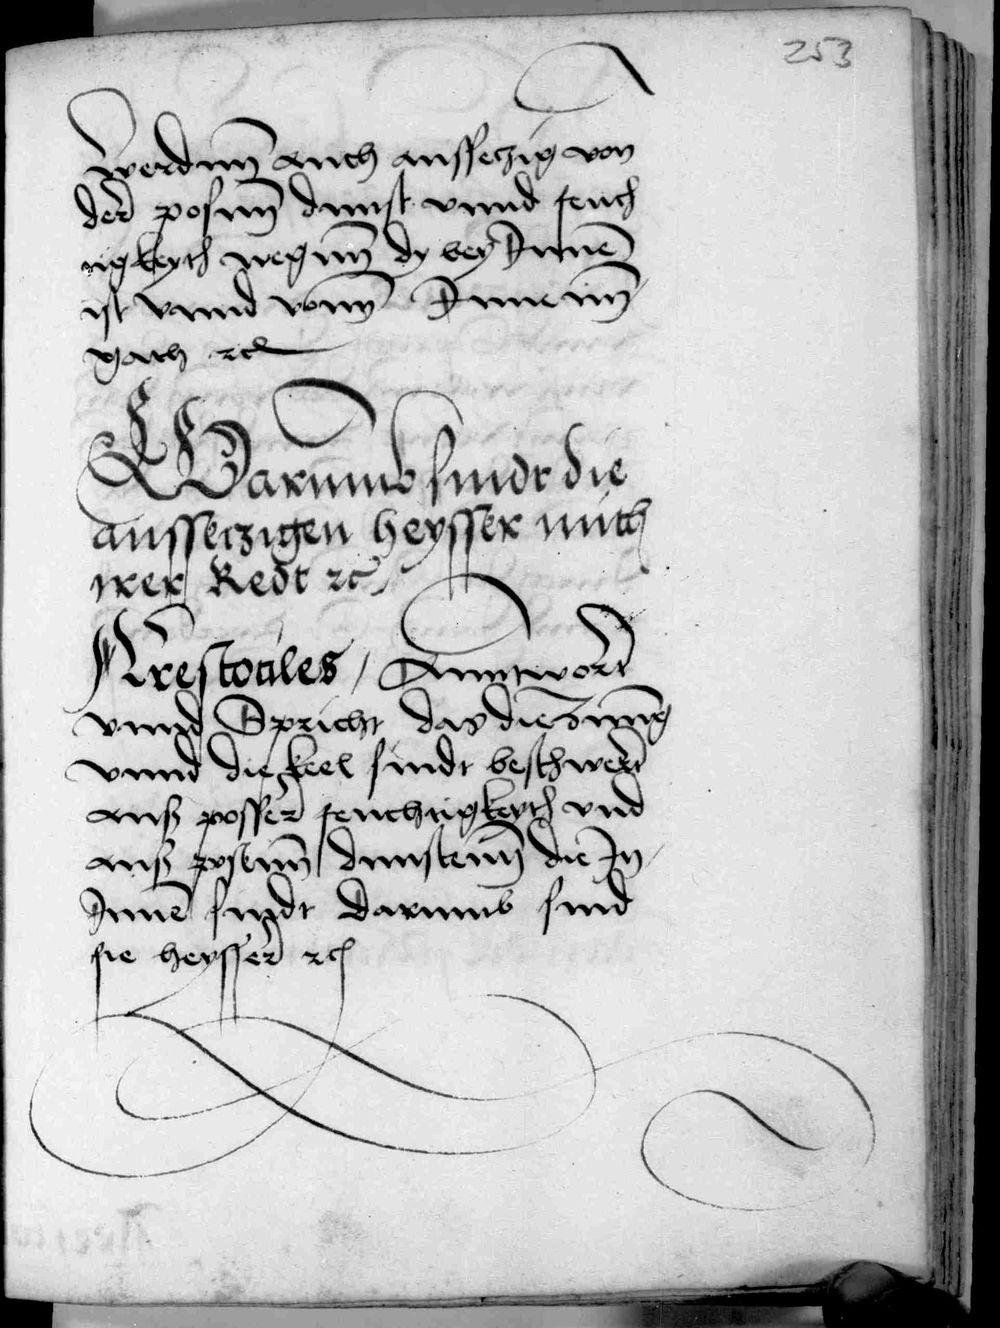 253
werdnn auch aussetzig von
der posnn dunst vnnd feuch
tigkeyth wegnn dy bey Innen
ist vnnd vonn Innenn
gath etc
Warumb sindt die
aussetzigen heysser mith
irer Redt etc
Arestotiles / Anntwort
vnnd Spricht das die Zunng
vnnd die keel sindt beschwert
auß posser feuchtigkeyth vnd
auß posenn dunstenn die In
Innen sindt darumb sind
sie heysser etc